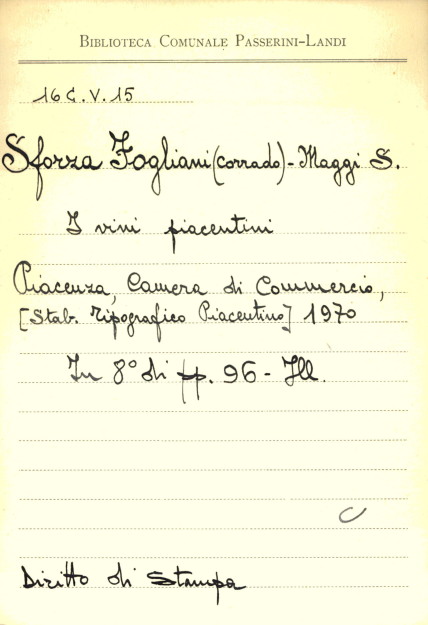 BIBLIOTECA COMUNALE PASSERINI-LANDI
16 C. V. 15
Sforza Fogliani (corrado) - Maggi S.
I vini piacentini
Piacenza, Camera di Commercio,
[Stab. Tipografico Piacentino] 1970
In 8° di pp. 96 - Ill.
C
Diritto di Stampa